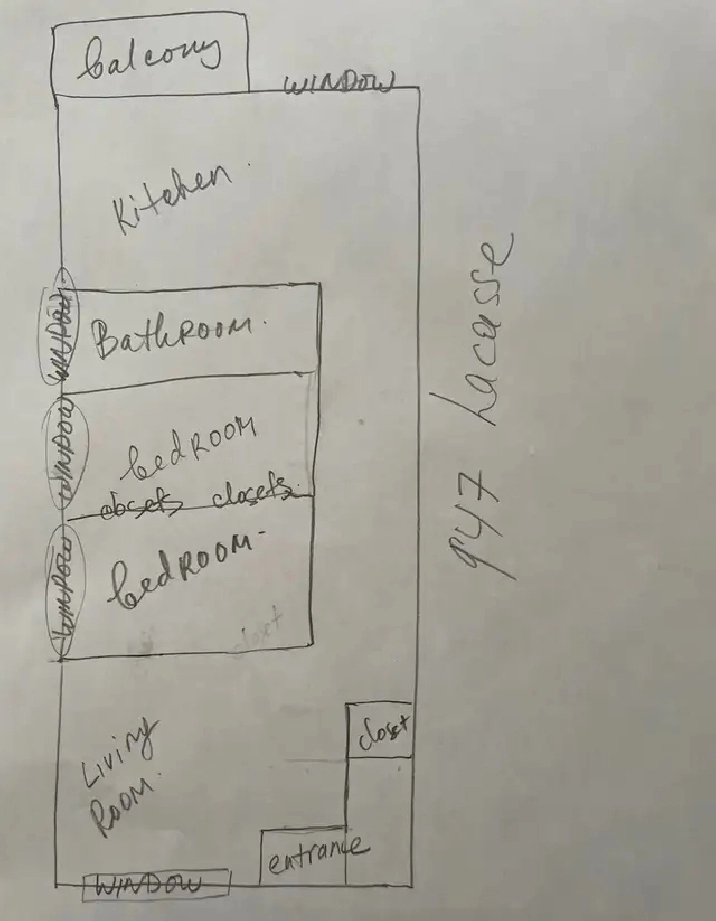 balcony
WINDOW
Kitchen.
WINDOW
BathROOM.
WINDOW
bedROOM
closets closets
WINDOW
bedROOM-
closet
closet
Living
ROOM.
entrance
WINDOW
947 Lacasse